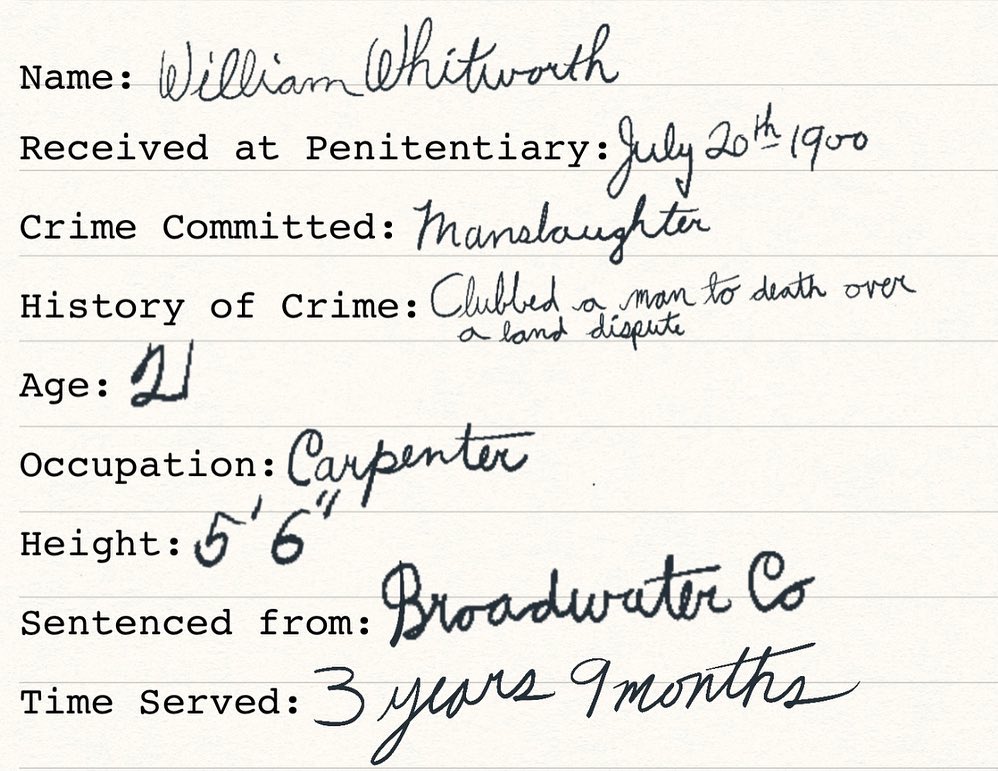 Name: William Whitworth
Received at Penitentiary: July 20th 1900
Crime Committed: Manslaughter
History of Crime: Clubbed a man to death over
a land dispute
Age: 21
Occupation: Carpenter
Height: 5' 6"
Sentenced from: Broadwater Co
Time Served: 3 years 9 months